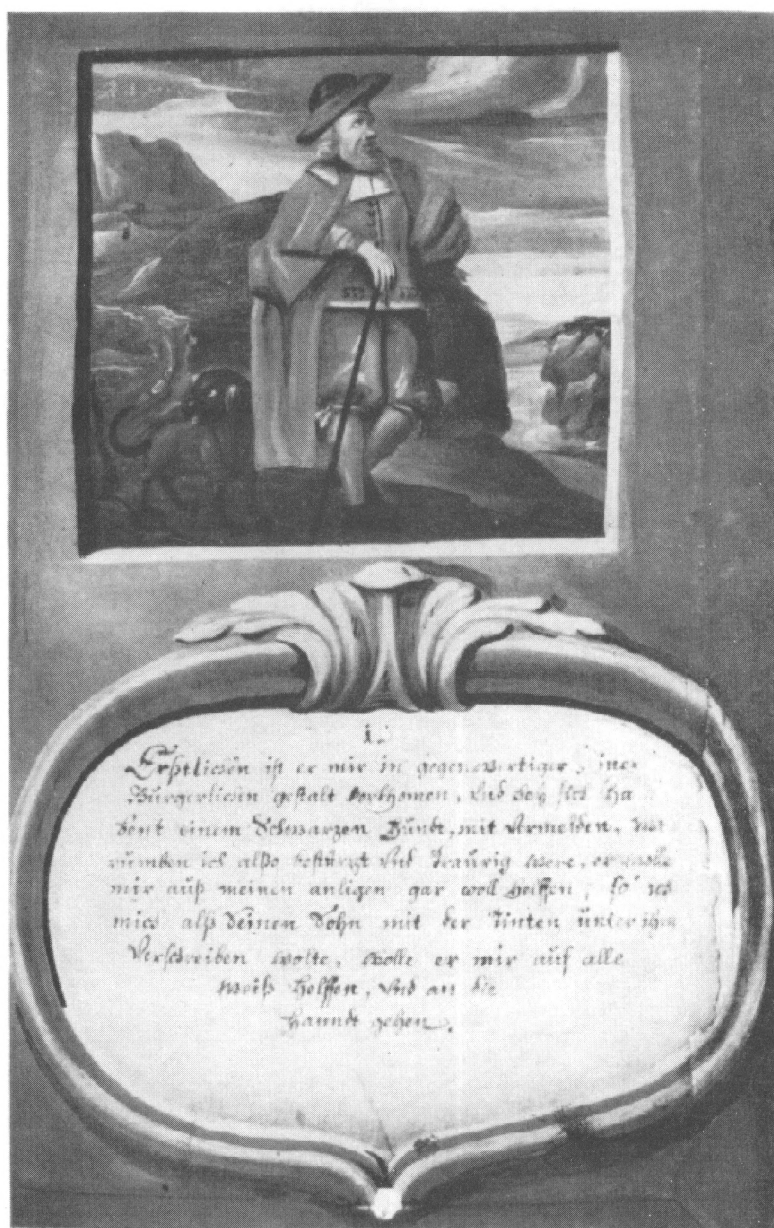 1.
Erstlichen ist er mir in gegenwertiger Einer
Bürgerlichen gestalt vorkhomen, Und bey sich ha
bent einem Schwarzen Hundt, mit Vermelden, wa
rumben ich alßo bestürzt Und Traurig were, er wolle
mir auß meinen anligen gar woll helffen; so ich
mich alß Seinen Sohn mit der Tinten unter ihm
Verschreiben wolte, wolle er mir auf alle
weiß helffen, Und an die
Hanndt gehen.